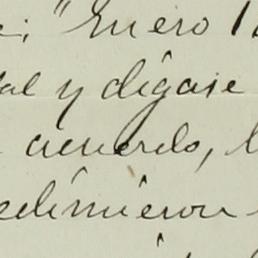 : "Enero 1
al y dígase
acuerdo, l
edimieron